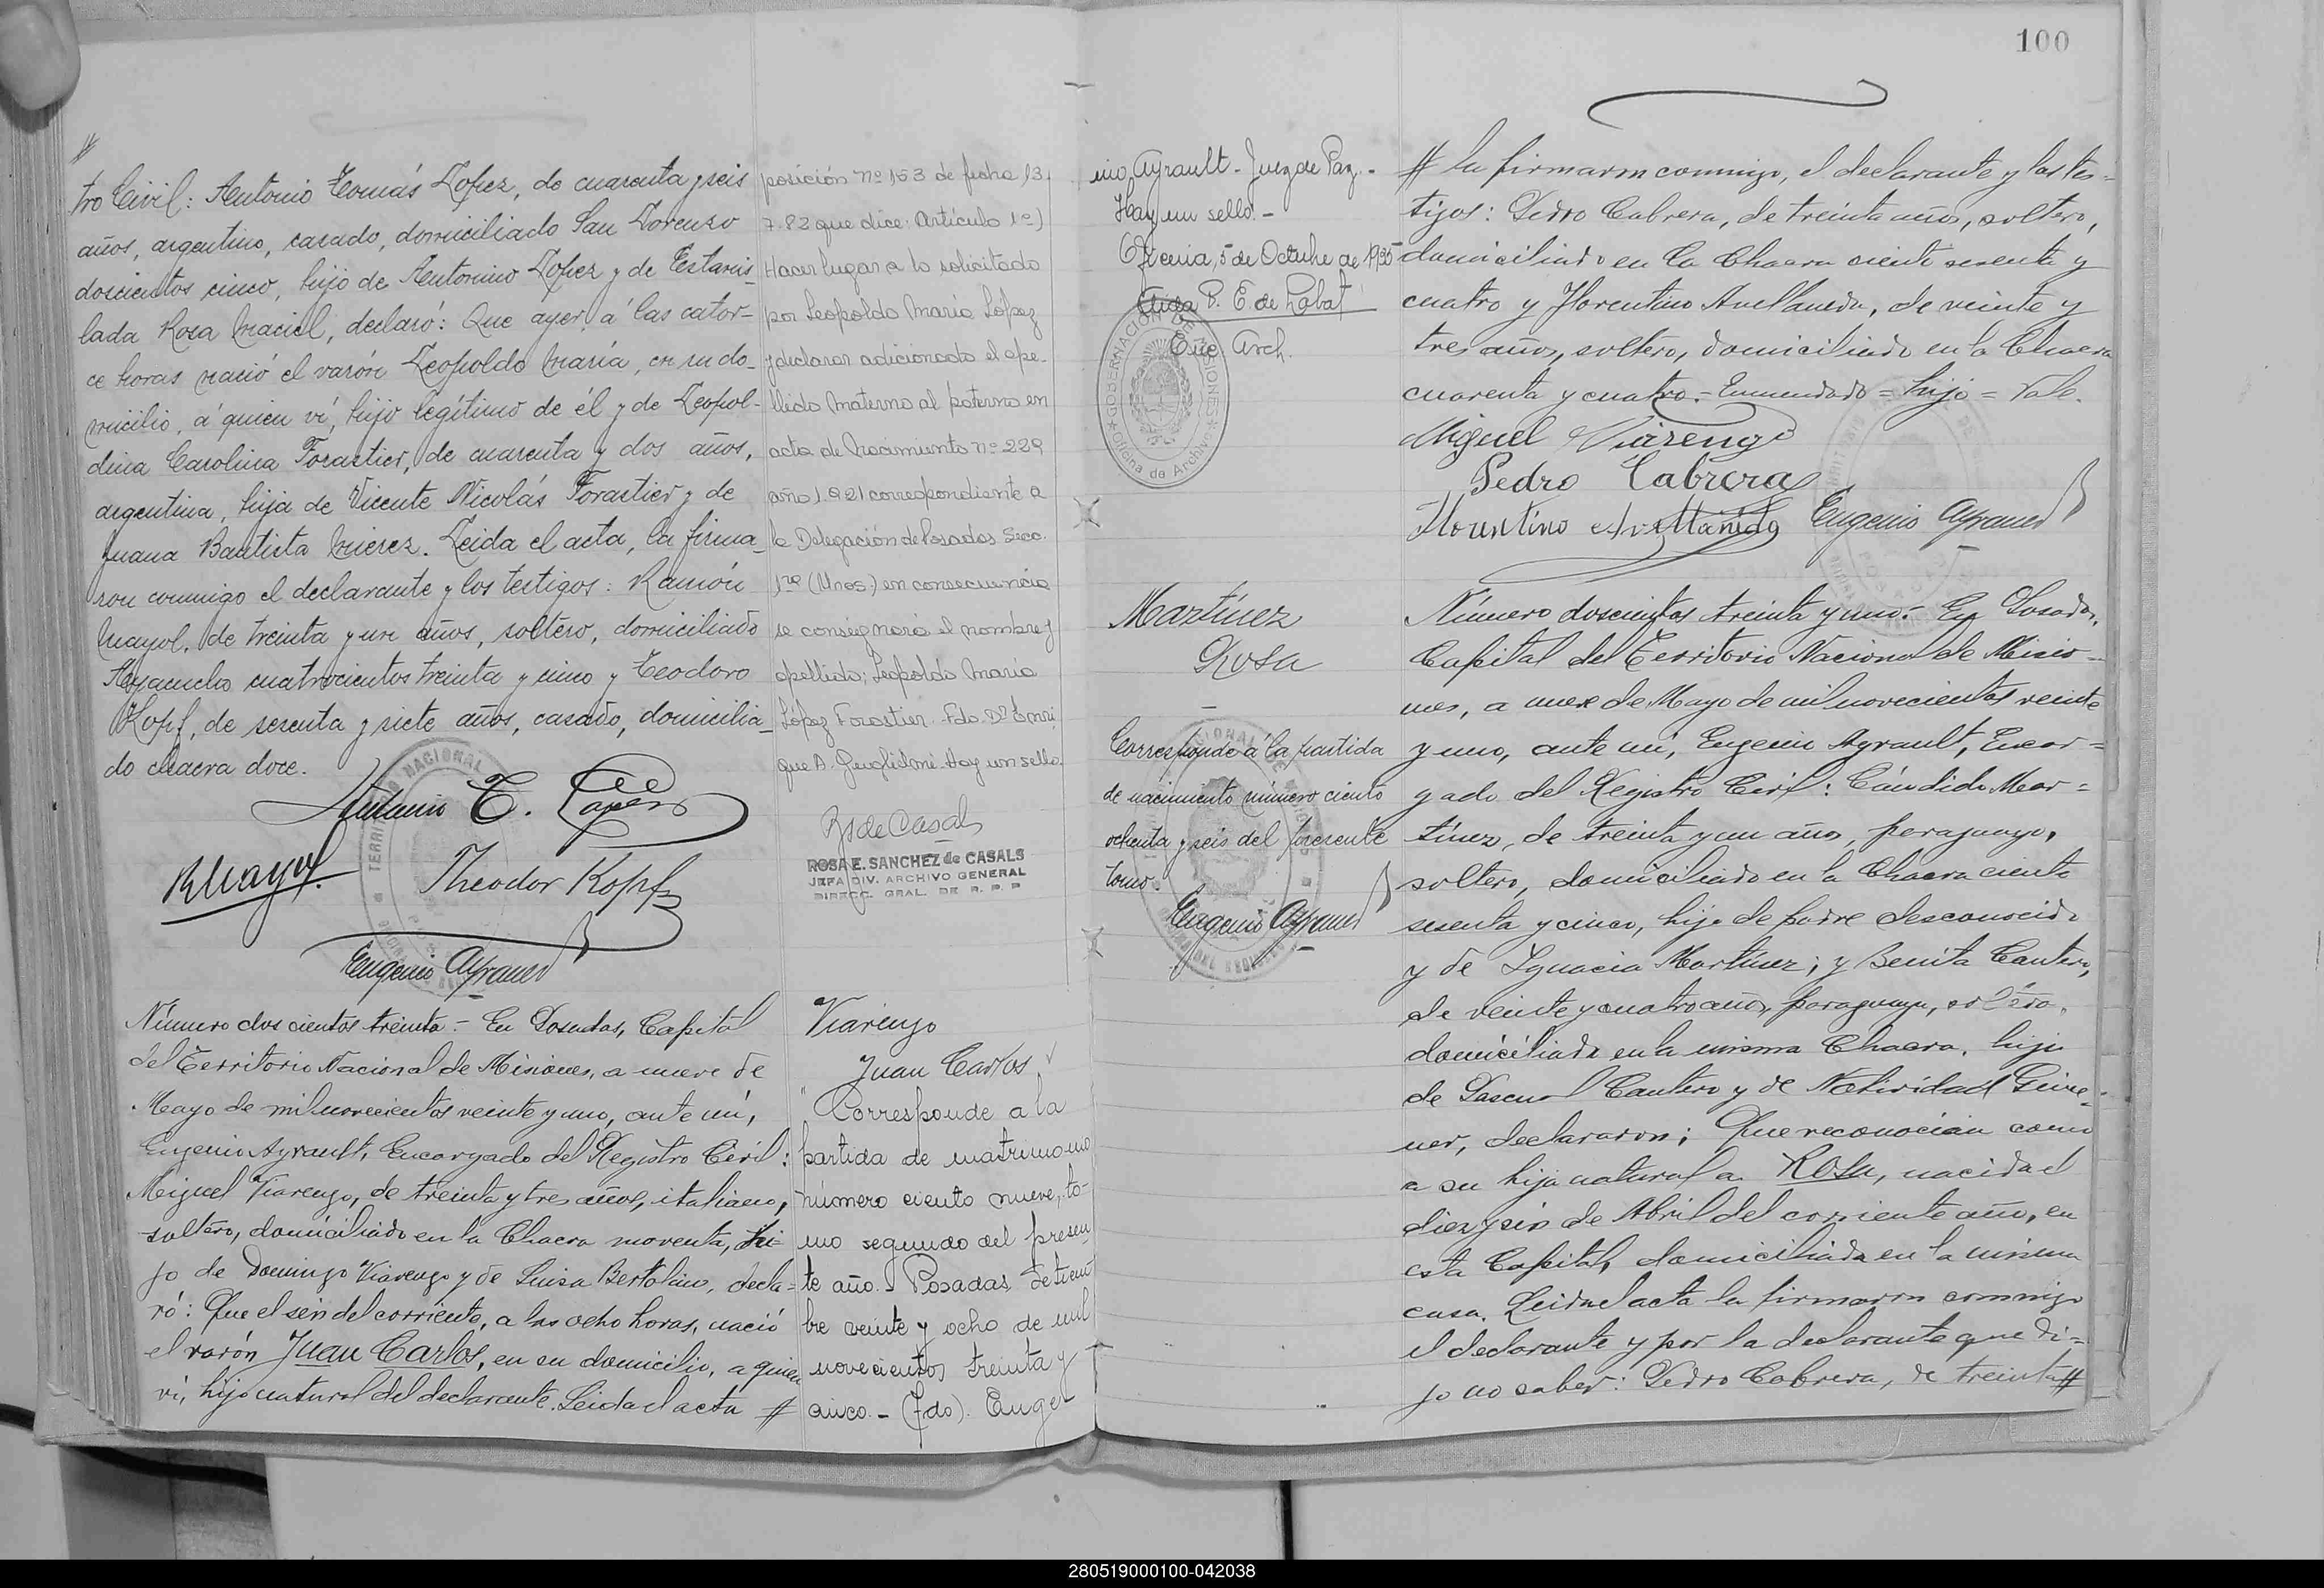 #
tro Civil: Antonio Tomás Lopez, de cuarenta y seis
años, argentino, casado, domiciliado San Lorenzo
doscientos cinco, hijo de Antonino Lopez y de Estanis-
lada Rosa Maciel, declaró: Que ayer, á las cator-
ce horas nació el varón Leopoldo María, en su do-
micilio, á quien ví, hijo legítimo de él y de Leopol-
dina Carolina Forastier, de cuarenta y dos años,
argentina, hija de Vicente Nicolás Forastier y de
Juana Bautista Mierez. Leida el acta, la firma-
ron conmigo el declarante y los testigos: Ramón
Mayol, de treinta y un años, soltero, domiciliado
Ayacucho cuatrocientos treinta y uno y Teodoro
Kopf, de sesenta y siete años, casado, domicilia-
do chacra doce.
Antonio T. Lopez
RMayol
Theodor Kopf
Eugenio Ayrault
posición nº 153 de fecha 13.
7.82 que dice: Artículo 1º)
Hacer lugar a lo solicitado
por Leopoldo María López
y declarar adicionado el ape-
llido materno al paterno en
acta de Nacimiento nº 229
año 1.921 correspondiente a
la Delegación de Posadas Secc.
1ra (Unos.) en consecuencia
se consignará el nombre y
apellido: Leopoldo María
López Forastier. Fdo. Dr Enri
que A. Hay un sello.
RSdeCasals
ROSA E. SANCHEZ de CASALS
JEFA DIV. ARCHIVO GENERAL
DIRECC. GRAL. DE R. P. P
Número doscientos treinta.- En Posadas, Capital
del Territorio Nacional de Misiones, a nueve de
Mayo de mil novecientos veinte y uno, ante mí,
Eugenio Ayrault, Encargado del Registro Civil:
Miguel Viarengo, de treinta y tres años, italiano,
soltero, domiciliado en la Chacra noventa, hi-
jo de Domingo Viarengo y de Luisa Bertolino, decla-
ró: Que el seis del corriente, a las ocho horas, nació
el varón Juan Carlos, en su domicilio, a quien
ví, hijo natural del declarante. Leida el acta #
Viarengo
Juan Carlos
Corresponde a la
partida de matrimonio
número ciento nueve, to-
mo segundo del presen
te año. Posadas, Setiem
bre veinte y ocho de mil
novecientos treinta y
cinco.- (Fdo). Euge
100
nio Ayrault - Juez de Paz.-
Hay un sello.-
Oficina, 5 de Octubre de 1935
Aida P. E de Labat
Enc. Arch.
GOBERNACIÓN DE MISIONES
Oficina de Archivo
# la firmaron conmigo, el declarante y los tes-
tigos: Pedro Cabrera, de treinta años, soltero,
domiciliado en la Chacra ciento sesenta y
cuatro y Florentino Avellaneda, de veinte y
tres años, soltero, domiciliado en la Chacra
cuarenta y cuatro.- Enmendado = hijo = Vale.
Miguel Viarengo
Pedro Cabrera
Florentino Avellaneda
Eugenio Ayrault
Martínez
Rosa
Corresponde á la partida
de nacimiento número ciento
ochenta y seis del presente
tomo.
Eugenio Ayrault
Número doscientos treinta y uno.- En Posadas,
Capital del Territorio Nacional de Misio-
nes, a nueve de Mayo de mil novecientos veinte
y uno, ante mí, Eugenio Ayrault, Encar-
gado del Registro Civil: Cándido Mar-
tínez, de treinta y un años, paraguayo,
soltero, domiciliado en la Chacra ciento
sesenta y cinco, hijo de padre desconocido
y de Ignacia Martínez; y Benita Cantero,
de veinte y cuatro años, paraguaya, soltera,
domiciliada en la misma Chacra, hija
de Pascual Cantero y de Natividad Gime-
nez, declararon: Que reconocían como
a su hija natural a Rosa, nacida el
diez y seis de Abril del corriente año, en
esta Capital, domiciliada en la misma
casa. Leida el acta la firmaron conmigo
el declarante y por la declarante que di-
jo no saber: Pedro Cabrera, de treinta #
280519000100-042038